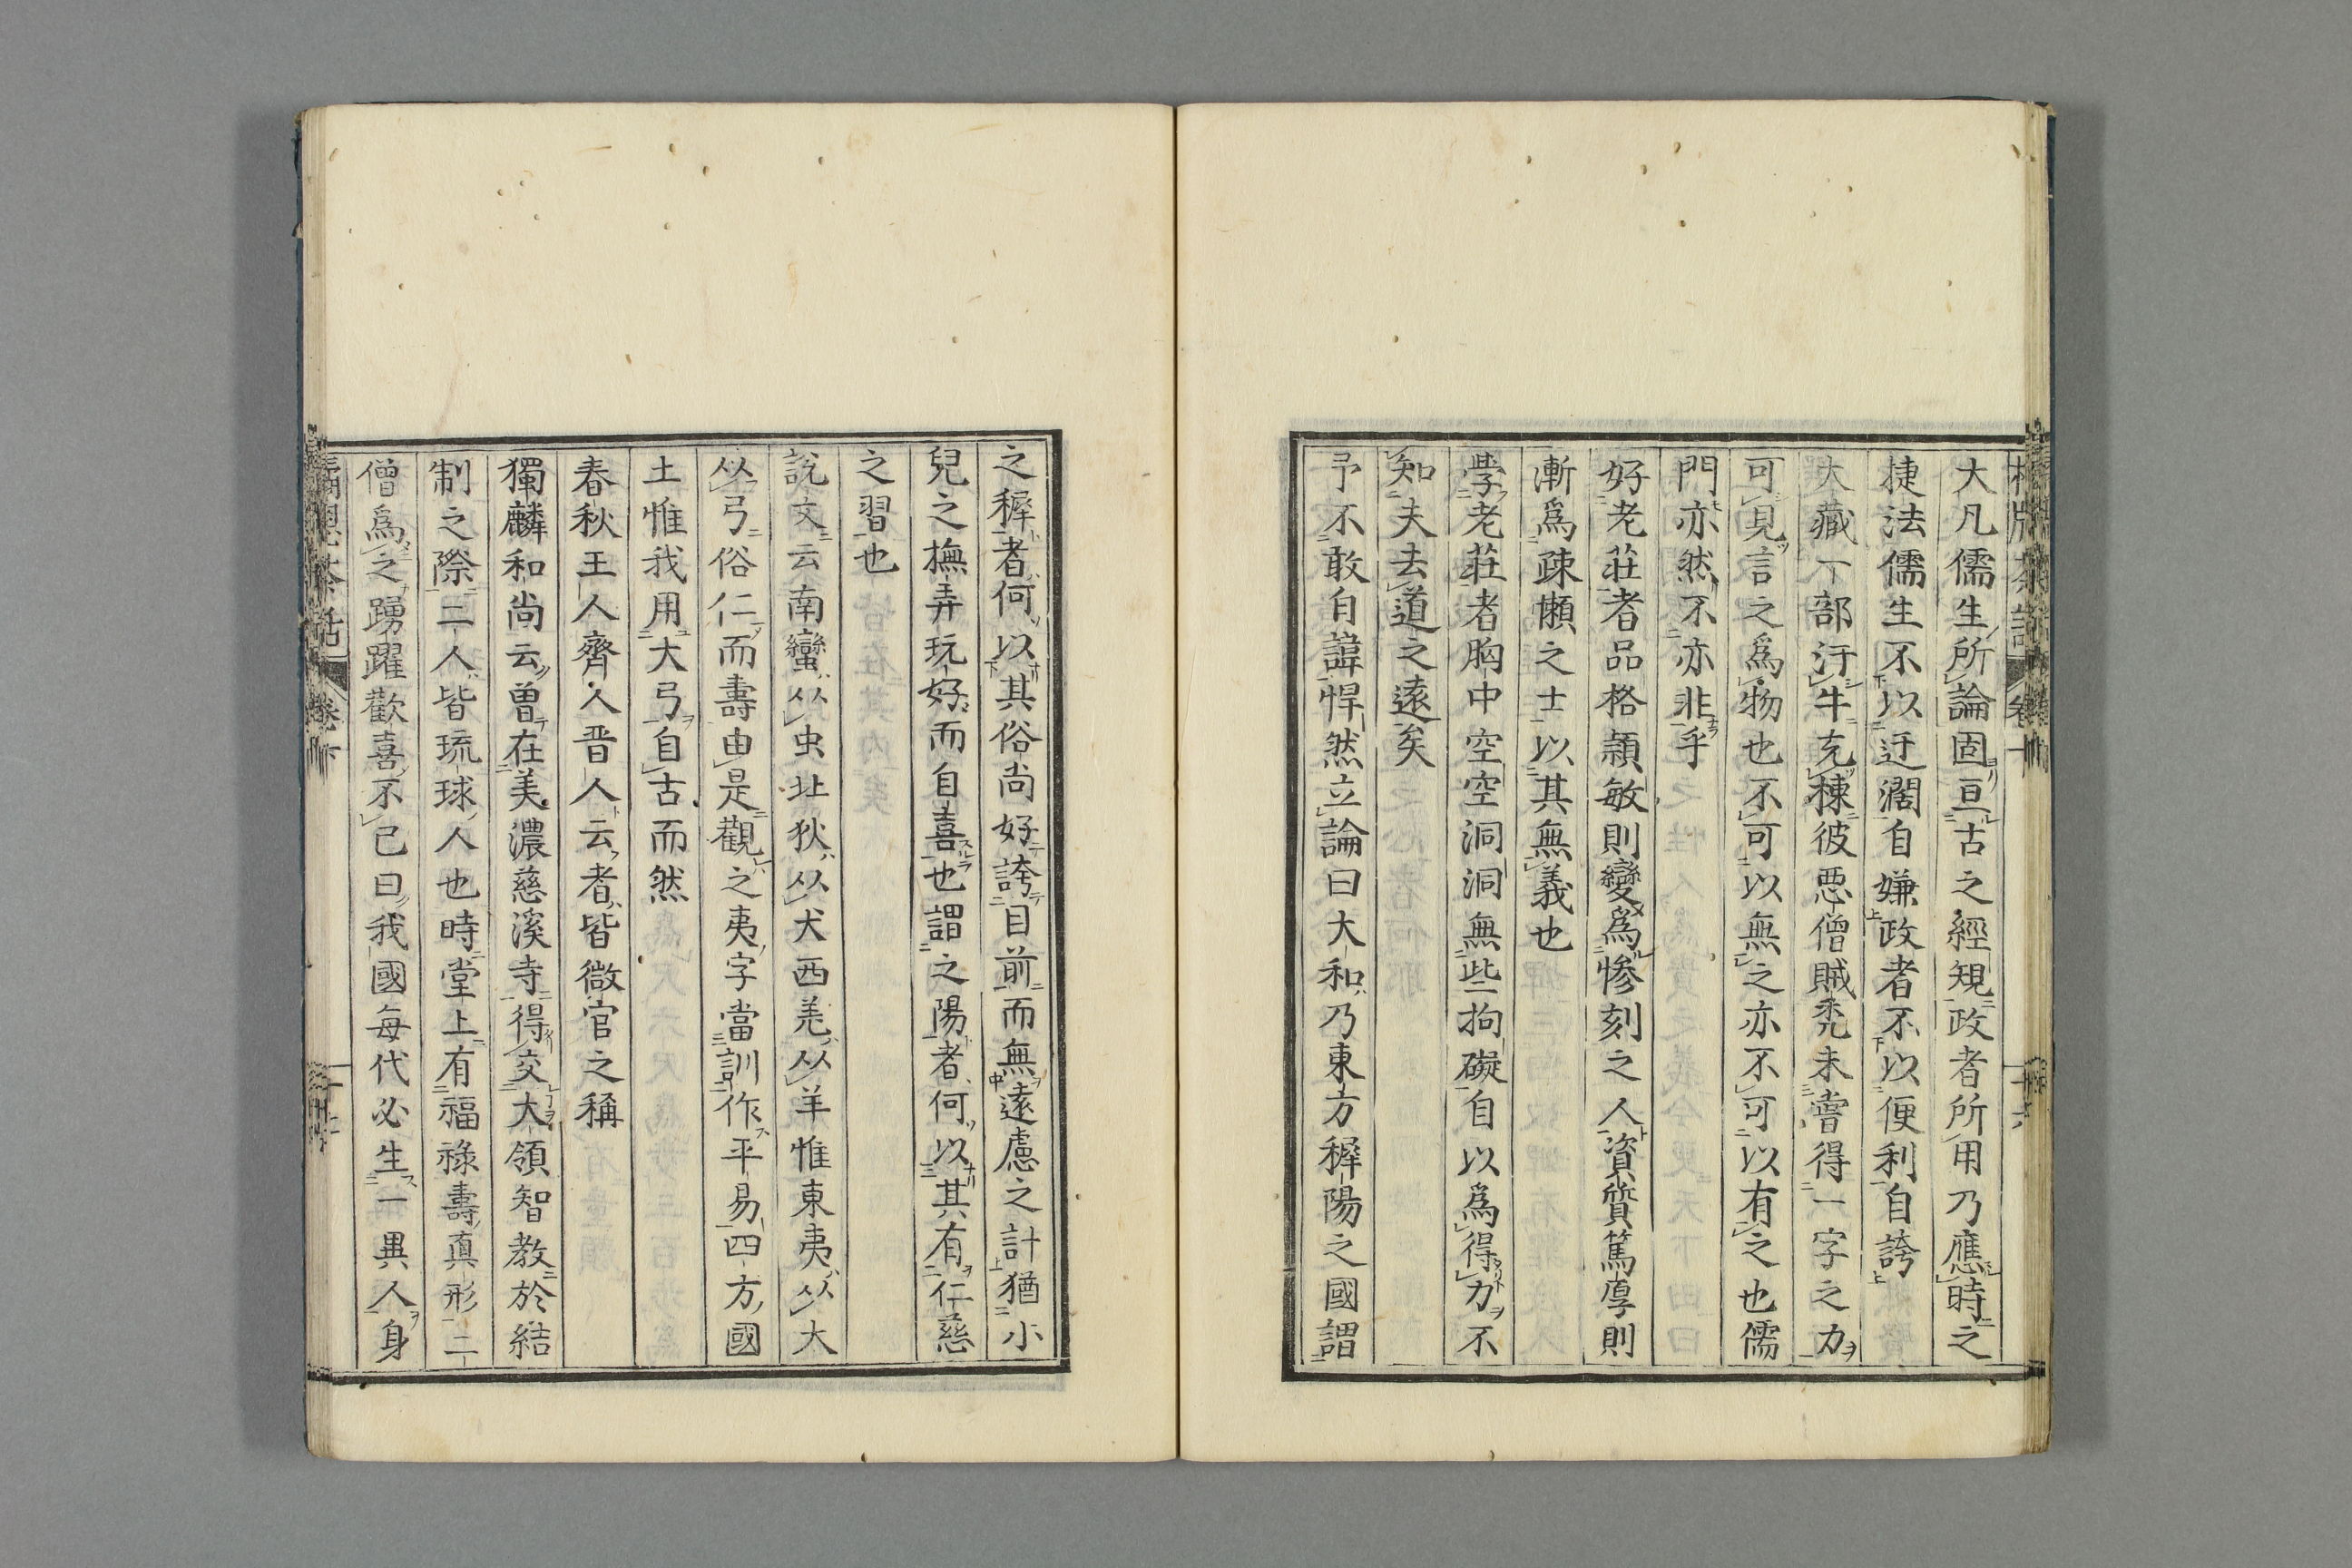 大凡儒生所論固亘古之經規政者所用乃應時之
捷法儒生不以迂濶自嫌政者不以便利自誇
大藏一部汗牛充棟彼惡僧賊禿未嘗得一字之力
可見言之爲物也不可以無之亦不可以有之也儒
門亦然不亦非乎
好老莊者品格頴敏則變爲慘刻之人資質篤厚則
漸爲疎懶之士以其無義也
學老莊者胸中空空洞洞無些拘礙自以爲得力不
知夫去道之遠矣
予不敢自諱悍然立論曰大和乃東方穉陽之國謂
之穉者何以其俗尚好誇目前而無遠慮之計猶小
兒之撫弄玩好而自喜也謂之陽者何以其有仁慈
之習也
說文云南蠻从虫北狄从犬西羌从羊惟東夷从大
从弓俗仁而壽由是觀之夷字當訓作平易四方國
土惟我用大弓自古而然
春秋王人齊人晋人云者皆微官之稱
獨麟和尚云曽在美濃慈溪寺得交大領智教於結
制之際二人皆琉球人也時堂上有福祿壽真形二
僧爲之踴躍歡喜不已曰我國每代必生一異人身